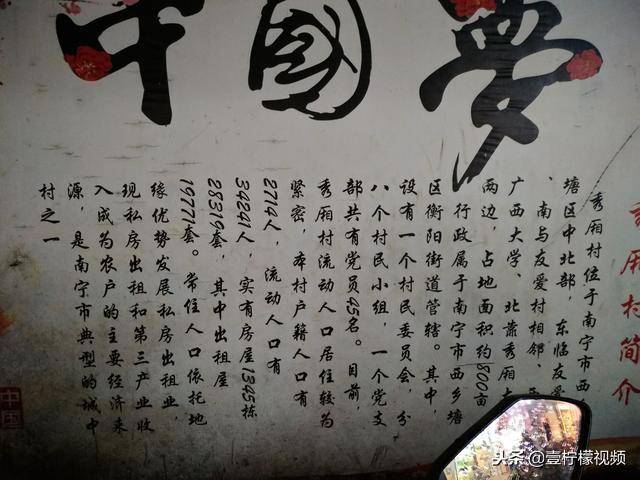 中國夢
秀厢村简介
秀厢村位于南宁市西
塘区中北部，东临友爱
、南与友爱村相邻、
广西大学、北靠秀厢大
两边，占地面积约800亩
行政属于南宁市西乡塘
区衡阳街道管辖。其中，
设有一个村民委员会，分
八个村民小组，一个党支
部共有党员45名。目前，
秀厢村流动人口居住较为
紧密，本村户籍人口有
2714人，流动人口有
34241人，实有房屋1345栋
28319套，其中出租屋
19771套。常住人口依托地
缘优势发展私房出租业，
现私房出租和第三产业收
入成为农户的主要经济来
源，是南宁市典型的城中
村之一
中国
头条 @壹柠檬视频